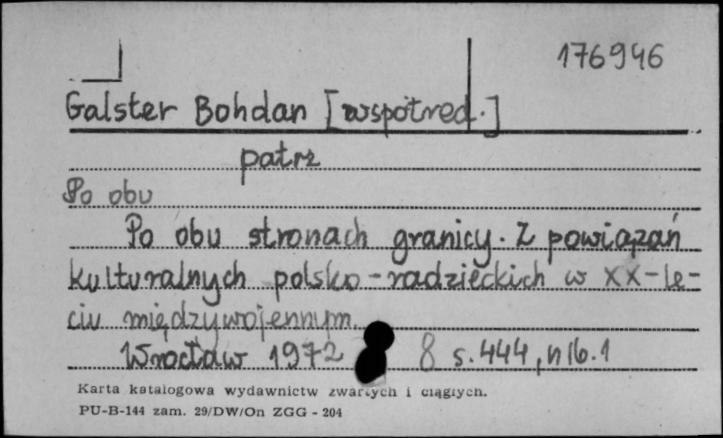 176946
Galster Bohdan [współred.]
patrz
Po obu
Po obu stronach granicy. Z powiązań
kulturalnych polsko-radzieckich w XX-le-
ciu międzywojennym.
Wrocław 1972 8 s.444, nlb.1
Karta katalogowa wydawnictw zwartych i ciągłych.
PU-B-144 zam. 29/DW/On ZGG - 204